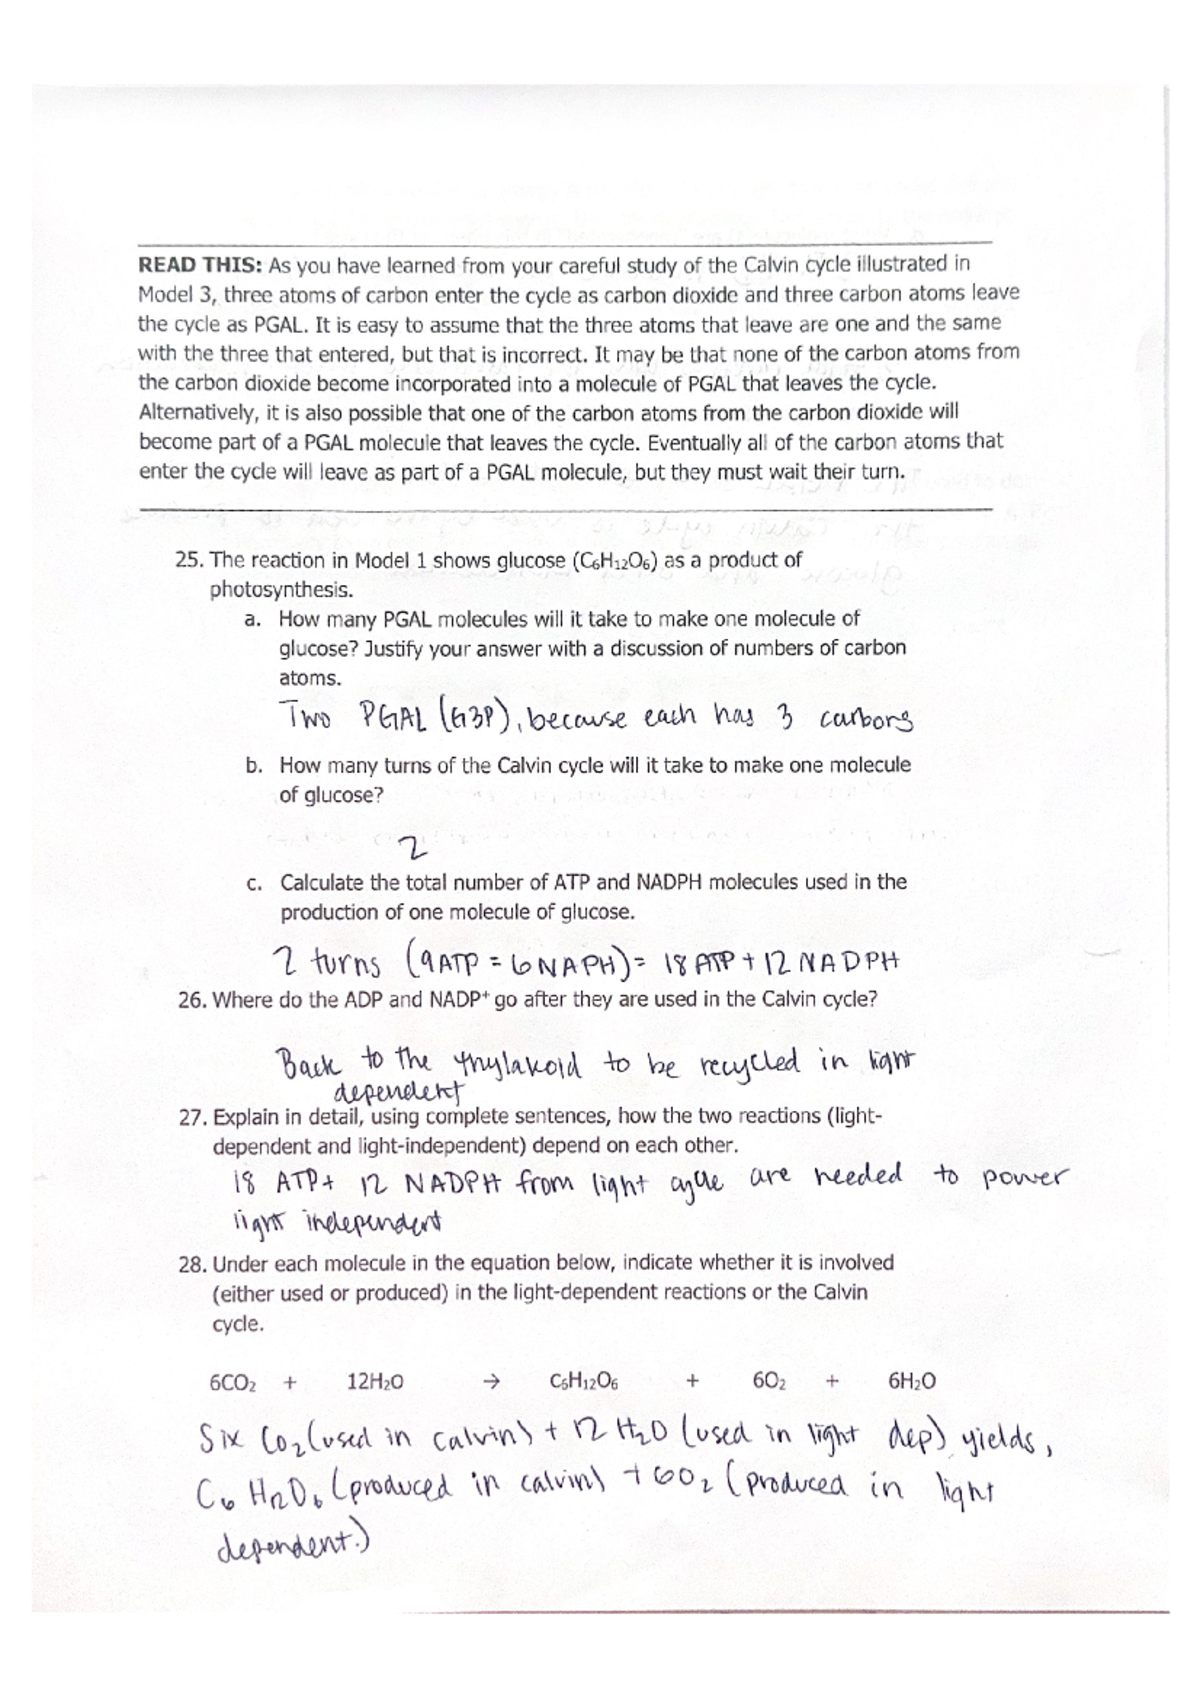 READ THIS: As you have learned from your careful study of the Calvin cycle illustrated in
Model 3, three atoms of carbon enter the cycle as carbon dioxide and three carbon atoms leave
the cycle as PGAL. It is easy to assume that the three atoms that leave are one and the same
with the three that entered, but that is incorrect. It may be that none of the carbon atoms from
the carbon dioxide become incorporated into a molecule of PGAL that leaves the cycle.
Alternatively, it is also possible that one of the carbon atoms from the carbon dioxide will
become part of a PGAL molecule that leaves the cycle. Eventually all of the carbon atoms that
enter the cycle will leave as part of a PGAL molecule, but they must wait their turn.
25. The reaction in Model 1 shows glucose (C₆H₁₂O₆) as a product of
photosynthesis.
a. How many PGAL molecules will it take to make one molecule of
glucose? Justify your answer with a discussion of numbers of carbon
atoms.
Two PGAL (G3P), because each has 3 carbons
b. How many turns of the Calvin cycle will it take to make one molecule
of glucose?
2
c. Calculate the total number of ATP and NADPH molecules used in the
production of one molecule of glucose.
2 turns (9ATP = 6NAPH) = 18 ATP + 12 NADPH
26. Where do the ADP and NADP⁺ go after they are used in the Calvin cycle?
Back to the thylakoid to be recycled in light
dependent
27. Explain in detail, using complete sentences, how the two reactions (light-
dependent and light-independent) depend on each other.
18 ATP + 12 NADPH from light cycle are needed to power
light independent
28. Under each molecule in the equation below, indicate whether it is involved
(either used or produced) in the light-dependent reactions or the Calvin
cycle.
6CO₂ + 12H₂O → C₆H₁₂O₆ + 6O₂ + 6H₂O
Six CO₂ (used in calvin) + 12 H₂O (used in light dep) yields,
C₆H₁₂O₆ (produced in calvin) + 6O₂ (produced in light
dependent.)